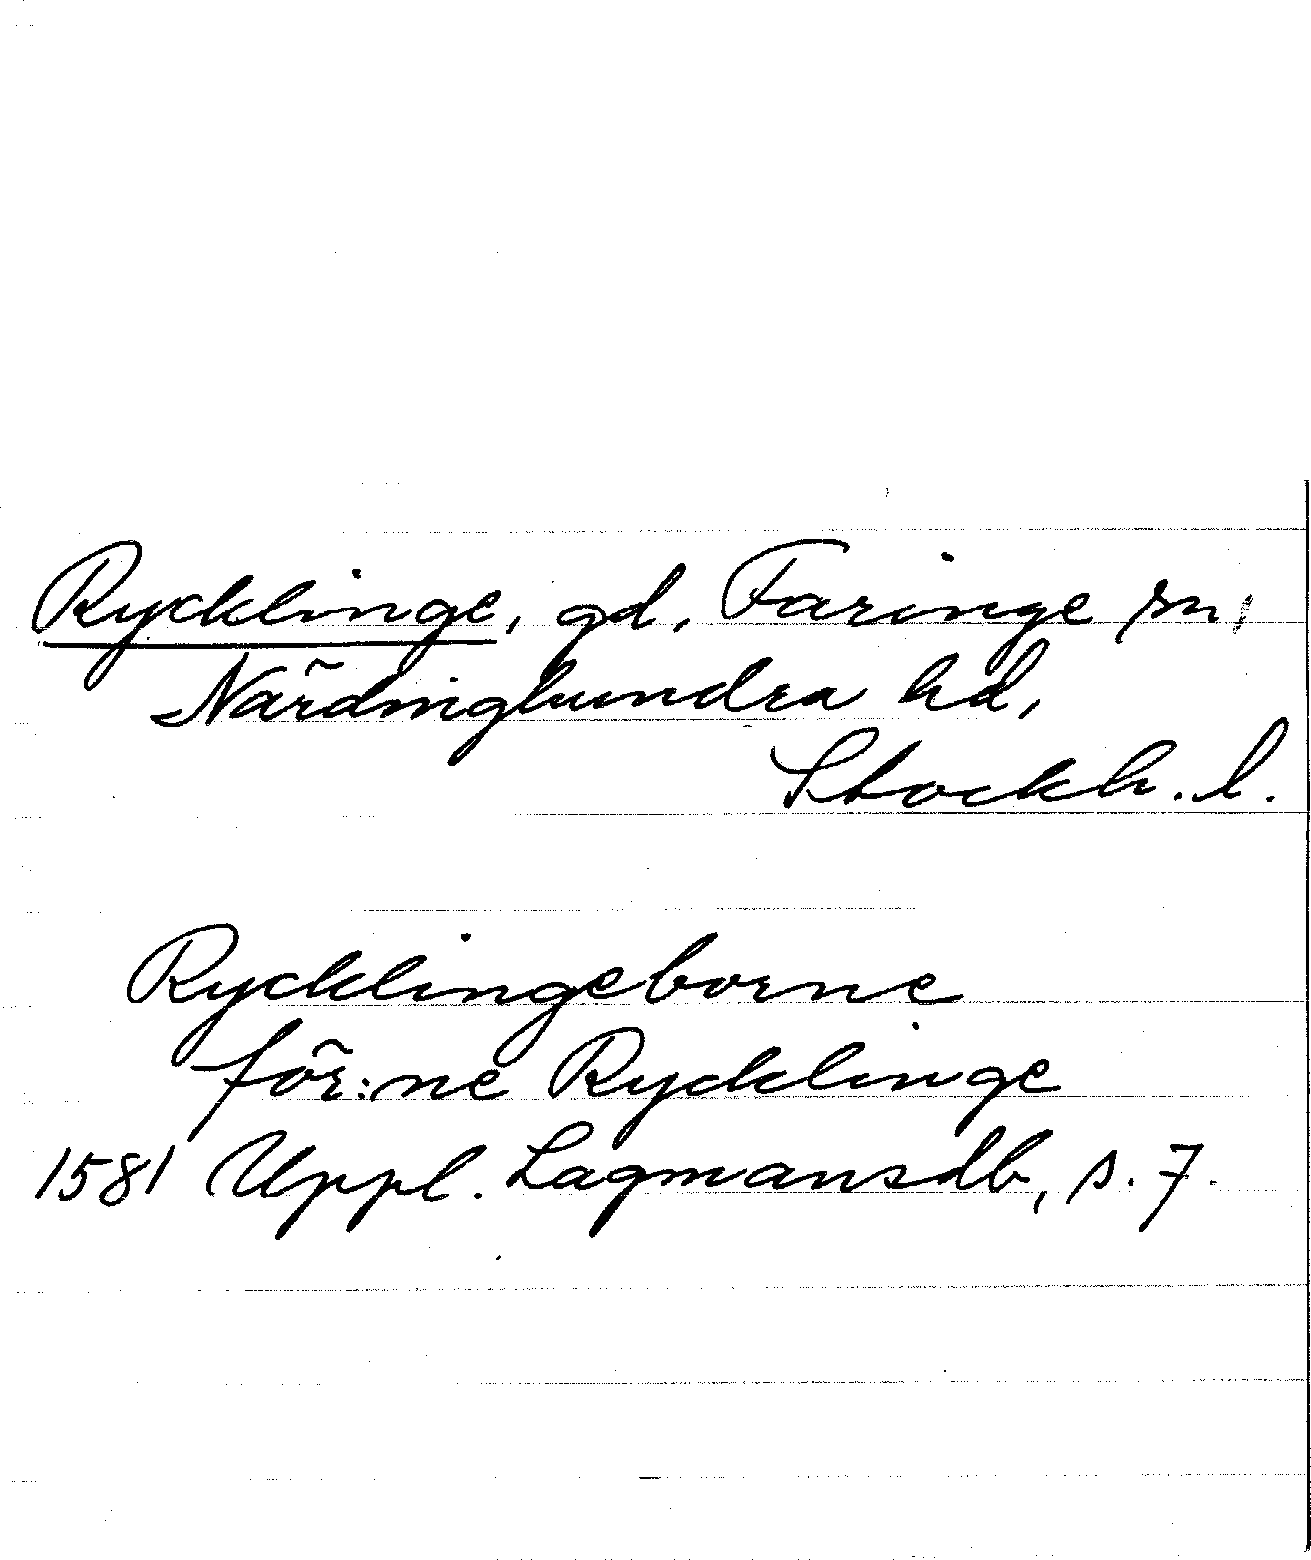 Rycklinge, gd, Faringe sn,
Närdinghundra hd,
Stockh. l.
Rycklingeborne
för:ne Rycklinge
1581 Uppl. Lagmansdb, s. 7.